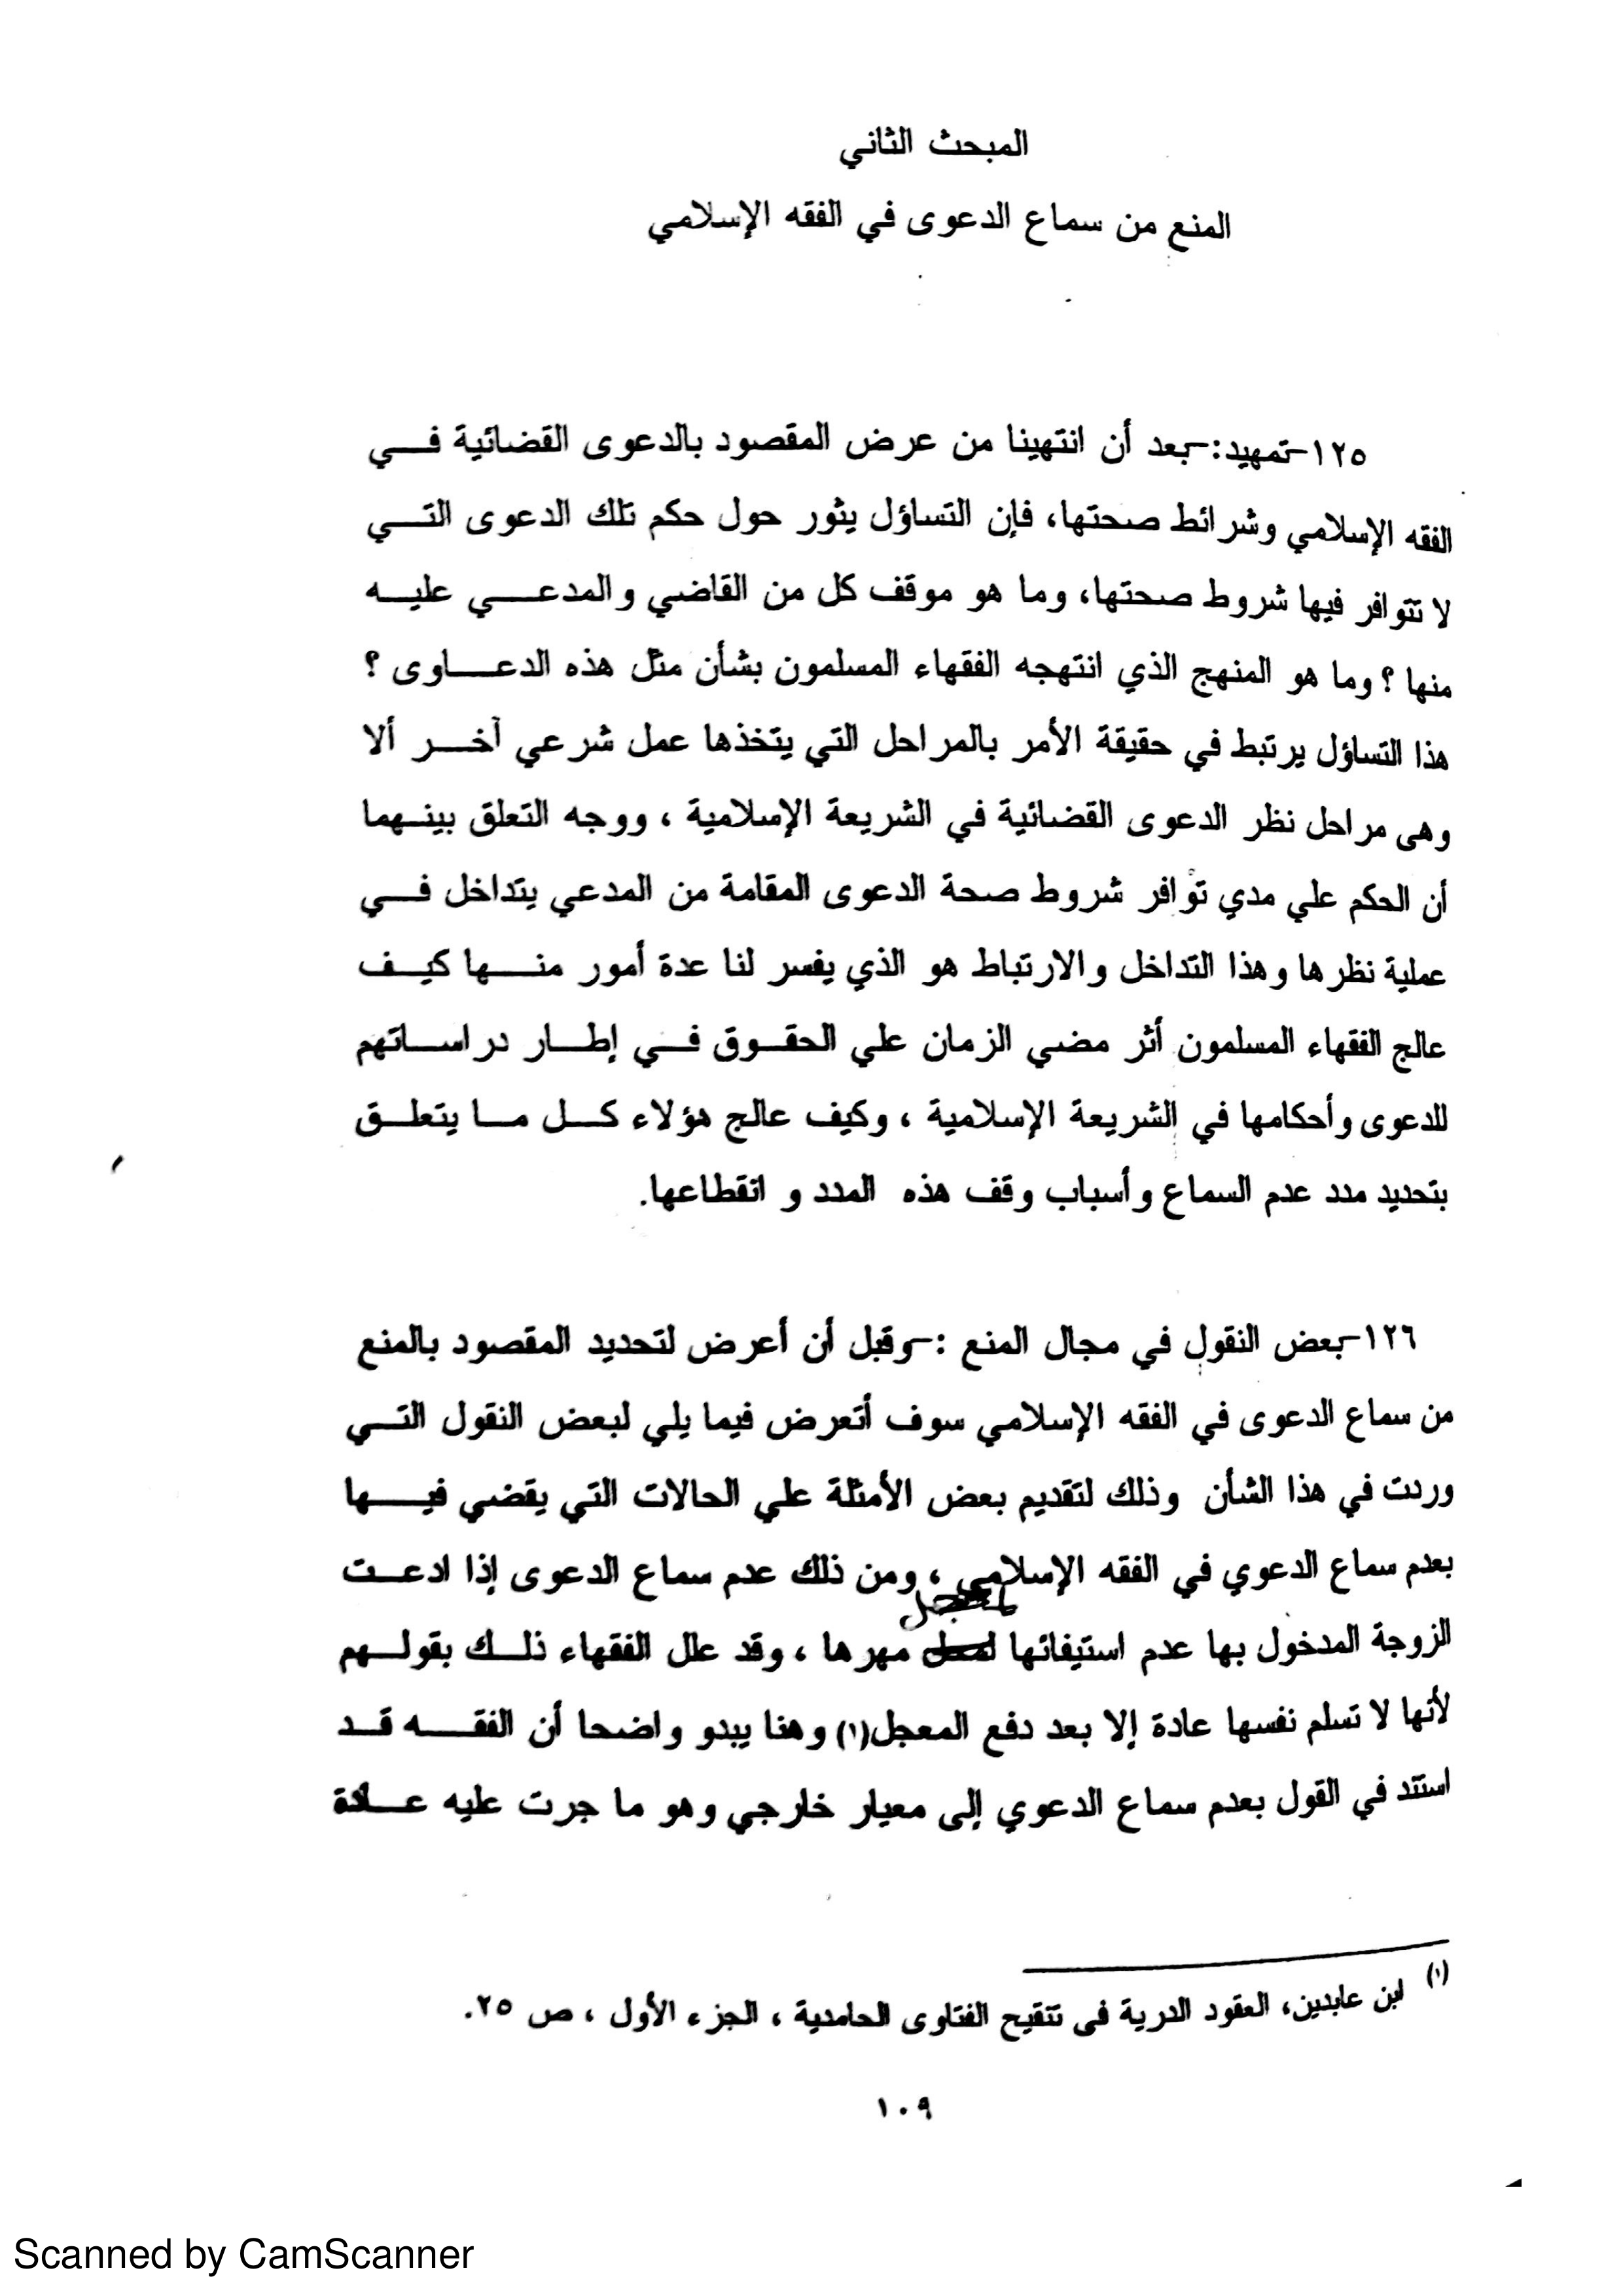 المبحث الثاني
المنع من سماع الدعوى في الفقه الإسلامي
١٢٥-تمهيد:-بعد أن انتهينا من عرض المقصود بالدعوى القضائية فـــي
الفقه الإسلامي وشرائط صحتها، فإن التساؤل يثور حول حكم تلك الدعوى التـــي
لا تتوافر فيها شروط صحتها، وما هو موقف كل من القاضي والمدعـــي عليـــه
منها ؟ وما هو المنهج الذي انتهجه الفقهاء المسلمون بشأن مثل هذه الدعـــاوى ؟
هذا التساؤل يرتبط في حقيقة الأمر بالمراحل التي يتخذها عمل شرعي آخـــر ألا
وهى مراحل نظر الدعوى القضائية في الشريعة الإسلامية ، ووجه التعلق بينـــهما
أن الحكم علي مدي توافر شروط صحة الدعوى المقامة من المدعي يتداخل فـــي
عملية نظرها وهذا التداخل والارتباط هو الذي يفسر لنا عدة أمور منـــها كيـــف
عالج الفقهاء المسلمون أثر مضي الزمان علي الحقـــوق فـــي إطـــار دراســـاتهم
للدعوى وأحكامها في الشريعة الإسلامية ، وكيف عالج هؤلاء كـــل مـــا يتعلـــق
بتحديد مدد عدم السماع وأسباب وقف هذه المدد و انقطاعها.
١٢٦-بعض النقول في مجال المنع :-وقبل أن أعرض لتحديد المقصود بالمنع
من سماع الدعوى في الفقه الإسلامي سوف أتعرض فيما يلي لبعض النقول التـــي
وردت في هذا الشأن وذلك لتقديم بعض الأمثلة علي الحالات التي يقضي فيـــها
بعدم سماع الدعوي في الفقه الإسلامي ، ومن ذلك عدم سماع الدعوى إذا ادعـــت
الزوجة المدخول بها عدم استيفائها لمعجل مهرها ، وقد علل الفقهاء ذلـــك بقولـــهم
لأنها لا تسلم نفسها عادة إلا بعد دفع المعجل(١) وهنا يبدو واضحا أن الفقـــه قـــد
استند في القول بعدم سماع الدعوي إلى معيار خارجي وهو ما جرت عليه عـــادة
(١) ابن عابدين، العقود الدرية فى تنقيح الفتاوى الحامدية ، الجزء الأول ، ص ٢٥.
١٠٩
Scanned by CamScanner